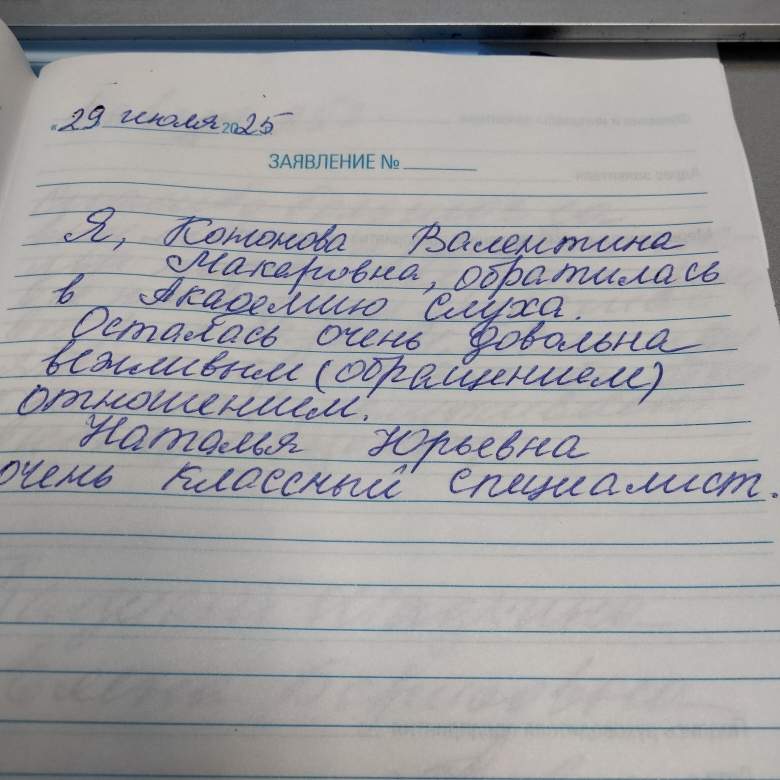 «29 июля 2025
ЗАЯВЛЕНИЕ №
Я, Кононова Валентина
Макаровна, обратилась
в Академию слуха.
Осталась очень довольна
вежливым (обращением)
отношением.
Наталья Юрьевна
очень классный специалист.